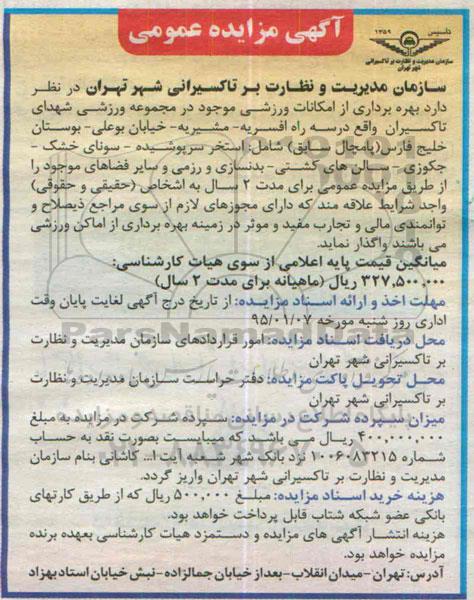 آگهی مزایده عمومی
تاسیس ۱۳۵۹
سازمان مدیریت و نظارت بر تاکسیرانی
شهر تهران
سازمان مدیریت و نظارت بر تاکسیرانی شهر تهران در نظر
دارد بهره برداری از امکانات ورزشی موجود در مجموعه ورزشی شهدای
تاکسیران واقع درسه راه افسریه- مشیریه- خیابان بوعلی- بوستان
خلیج فارس(پامچال سابق) شامل: استخر سرپوشیده - سونای خشک -
جکوزی - سالن های کشتی- بدنسازی و رزمی و سایر فضاهای موجود را
از طریق مزایده عمومی برای مدت ۲ سال به اشخاص (حقیقی و حقوقی)
واجد شرایط علاقه مند که دارای مجوزهای لازم از سوی مراجع ذیصلاح و
توانمندی مالی و تجارب مفید و موثر در زمینه بهره برداری از اماکن ورزشی
می باشند واگذار نماید.
میانگین قیمت پایه اعلامی از سوی هیات کارشناسی:
۳۲۷,۵۰۰,۰۰۰ ریال (ماهیانه برای مدت ۲ سال)
مهلت اخذ و ارائه اسناد مزایده: از تاریخ درج آگهی لغایت پایان وقت
اداری روز شنبه مورخه ۹۵/۰۱/۰۷
محل دریافت اسناد مزایده: امور قراردادهای سازمان مدیریت و نظارت
بر تاکسیرانی شهر تهران
محل تحویل پاکت مزایده: دفتر حراست سازمان مدیریت و نظارت
بر تاکسیرانی شهر تهران
میزان سپرده شرکت در مزایده: سپرده شرکت در مزایده به مبلغ
۴۰۰,۰۰۰,۰۰۰ ریال می باشد که میبایست بصورت نقد به حساب
شماره ۱۰۰۶۰۸۳۲۱۵ نزد بانک شهر شعبه آیت ا... کاشانی بنام سازمان
مدیریت و نظارت بر تاکسیرانی شهر تهران واریز گردد.
هزینه خرید اسناد مزایده: مبلغ ۵۰۰,۰۰۰ ریال که از طریق کارتهای
بانکی عضو شبکه شتاب قابل پرداخت خواهد بود.
هزینه انتشار آگهی های مزایده و دستمزد هیات کارشناسی بعهده برنده
مزایده خواهد بود.
آدرس: تهران - میدان انقلاب - بعد از خیابان جمالزاده - نبش خیابان استاد بهزاد
ParsNamadData